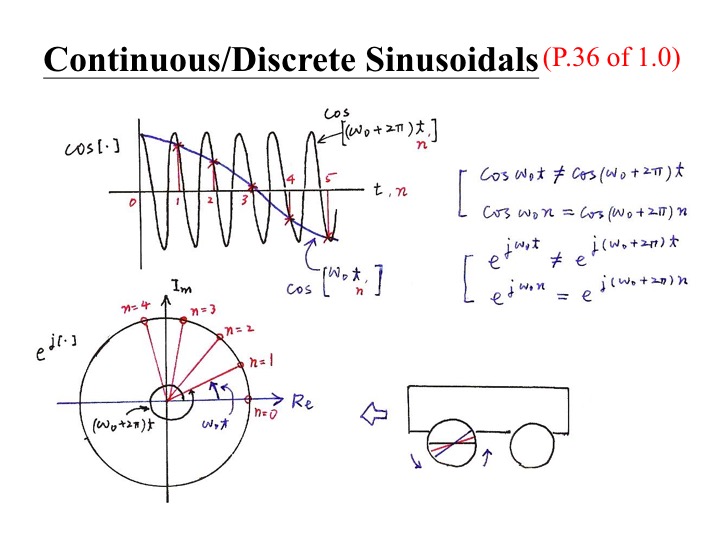 Continuous/Discrete Sinusoidals (P.36 of 1.0)
cos[(ω₀+2π)t, n]
cos[·]
0 1 2 3 4 5 t, n
cos[ω₀t, n]
cos ω₀t ≠ cos(ω₀+2π)t
cos ω₀n = cos(ω₀+2π)n
e^{jω₀t} ≠ e^{j(ω₀+2π)t}
e^{jω₀n} = e^{j(ω₀+2π)n}
Im
n=4 n=3
n=2
e^{j[·]}
n=1
Re
n=0
(ω₀+2π)t ω₀t